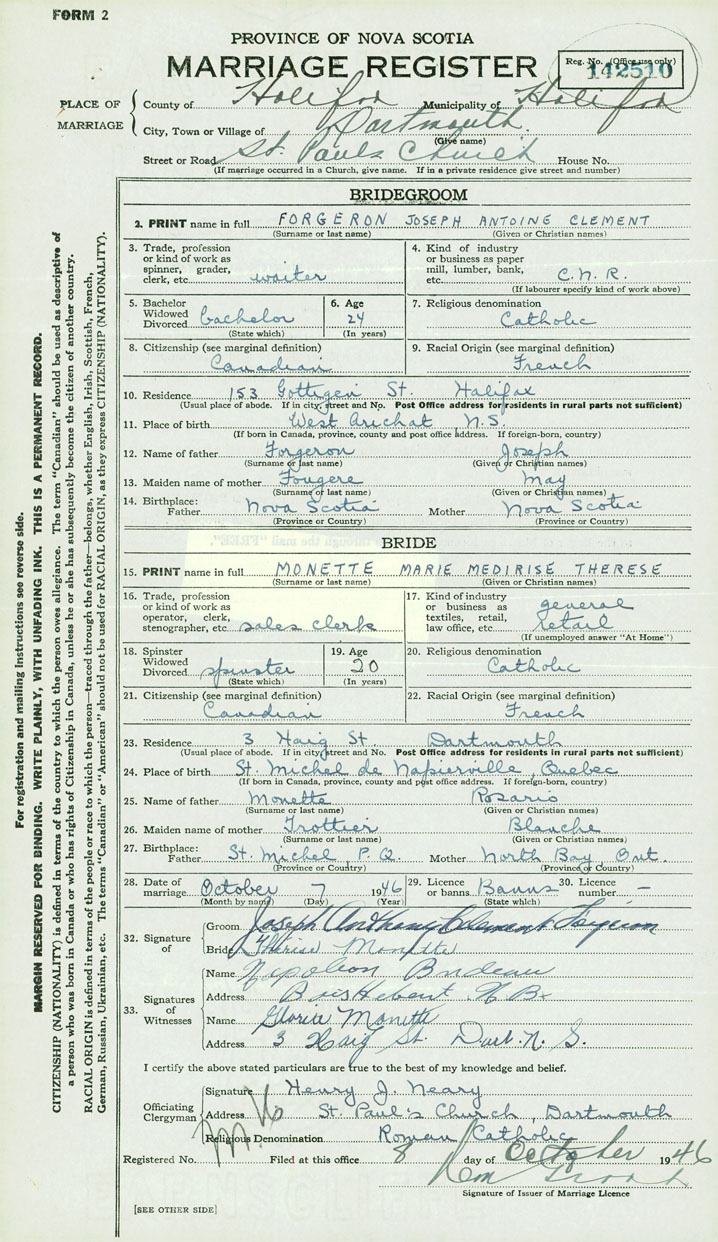 FORM 2
PROVINCE OF NOVA SCOTIA
MARRIAGE REGISTER
Reg. No. (Office use only)
142510
PLACE OF MARRIAGE
County of Halifax Municipality of Halifax
City, Town or Village of Dartmouth
(Give name)
Street or Road St. Pauls Church House No.
(If marriage occurred in a Church, give name. If in a private residence give street and number)
BRIDEGROOM
2. PRINT name in full FORGERON JOSEPH ANTOINE CLEMENT
(Surname or last name) (Given or Christian names)
3. Trade, profession or kind of work as spinner, grader, clerk, etc. waiter
4. Kind of industry or business as paper mill, lumber, bank, etc. C.N.R.
(If labourer specify kind of work above)
5. Bachelor Widowed Divorced bachelor (State which)
6. Age 24 (In years)
7. Religious denomination Catholic
8. Citizenship (see marginal definition) Canadian
9. Racial Origin (see marginal definition) French
10. Residence 153 Gottigen St. Halifax
(Usual place of abode. If in city, street and No. Post Office address for residents in rural parts not sufficient)
11. Place of birth West Arichat N.S.
(If born in Canada, province, county and post office address. If foreign-born, country)
12. Name of father Forgeron Joseph
(Surname or last name) (Given or Christian names)
13. Maiden name of mother Fougere May
(Surname or last name) (Given or Christian names)
14. Birthplace: Father Nova Scotia Mother Nova Scotia
(Province or Country) (Province or Country)
BRIDE
15. PRINT name in full MONETTE MARIE MEDIRISE THERESE
(Surname or last name) (Given or Christian names)
16. Trade, profession or kind of work as operator, clerk, stenographer, etc sales clerk
17. Kind of industry or business as textiles, retail, law office, etc. general retail
(If unemployed answer "At Home")
18. Spinster Widowed Divorced spinster (State which)
19. Age 20 (In years)
20. Religious denomination Catholic
21. Citizenship (see marginal definition) Canadian
22. Racial Origin (see marginal definition) French
23. Residence 3 Haig St. Dartmouth
(Usual place of abode. If in city street and No. Post Office address for residents in rural parts not sufficient)
24. Place of birth St. Michel de Napierville, Quebec
(If born in Canada, province, county and post office address. If foreign-born, country)
25. Name of father Monette Rosario
(Surname or last name) (Given or Christian names)
26. Maiden name of mother Trottier Blanche
(Surname or last name) (Given or Christian names)
27. Birthplace: Father St. Michel, P.Q. Mother North Bay, Ont.
(Province or Country) (Province or Country)
28. Date of marriage October 7 1946
(Month by name) (Day) (Year)
29. Licence or banns Banns (State which)
30. Licence number –
32. Signature of
Groom Joseph Anthony Clement
Bride Thérèse Monette
33. Signatures of Witnesses
Name Napoleon
Address N.B.
Name Monette
Address 3 Haig St. Dart. N.S.
I certify the above stated particulars are true to the best of my knowledge and belief.
Officiating Clergyman
Signature Henry J. Neary
Address St. Paul's Church, Dartmouth
Religious Denomination Roman Catholic
Registered No. Filed at this office 8 day of October 1946
Signature of Issuer of Marriage Licence
[SEE OTHER SIDE]
For registration and mailing instructions see reverse side.
MARGIN RESERVED FOR BINDING. WRITE PLAINLY, WITH UNFADING INK. THIS IS A PERMANENT RECORD.
CITIZENSHIP (NATIONALITY) is defined in terms of the country to which the person owes allegiance. The term "Canadian" should be used as descriptive of
a person who was born in Canada or who has rights of Citizenship in Canada, unless he or she has subsequently become the citizen of another country.
RACIAL ORIGIN is defined in terms of the people or race to which the person—traced through the father—belongs, whether English, Irish, Scottish, French,
German, Russian, Ukrainian, etc. The terms "Canadian" or "American" should not be used for RACIAL ORIGIN, as they express CITIZENSHIP (NATIONALITY).